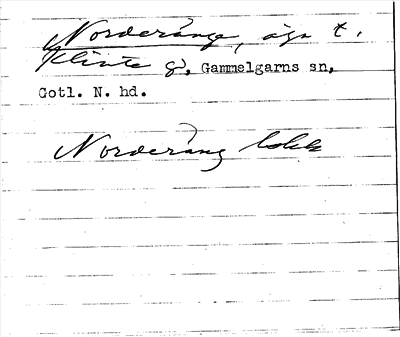 Norderänge, äga t.
Klinte g), Gammelgarns sn,
Gotl. N. hd.
Norderäng